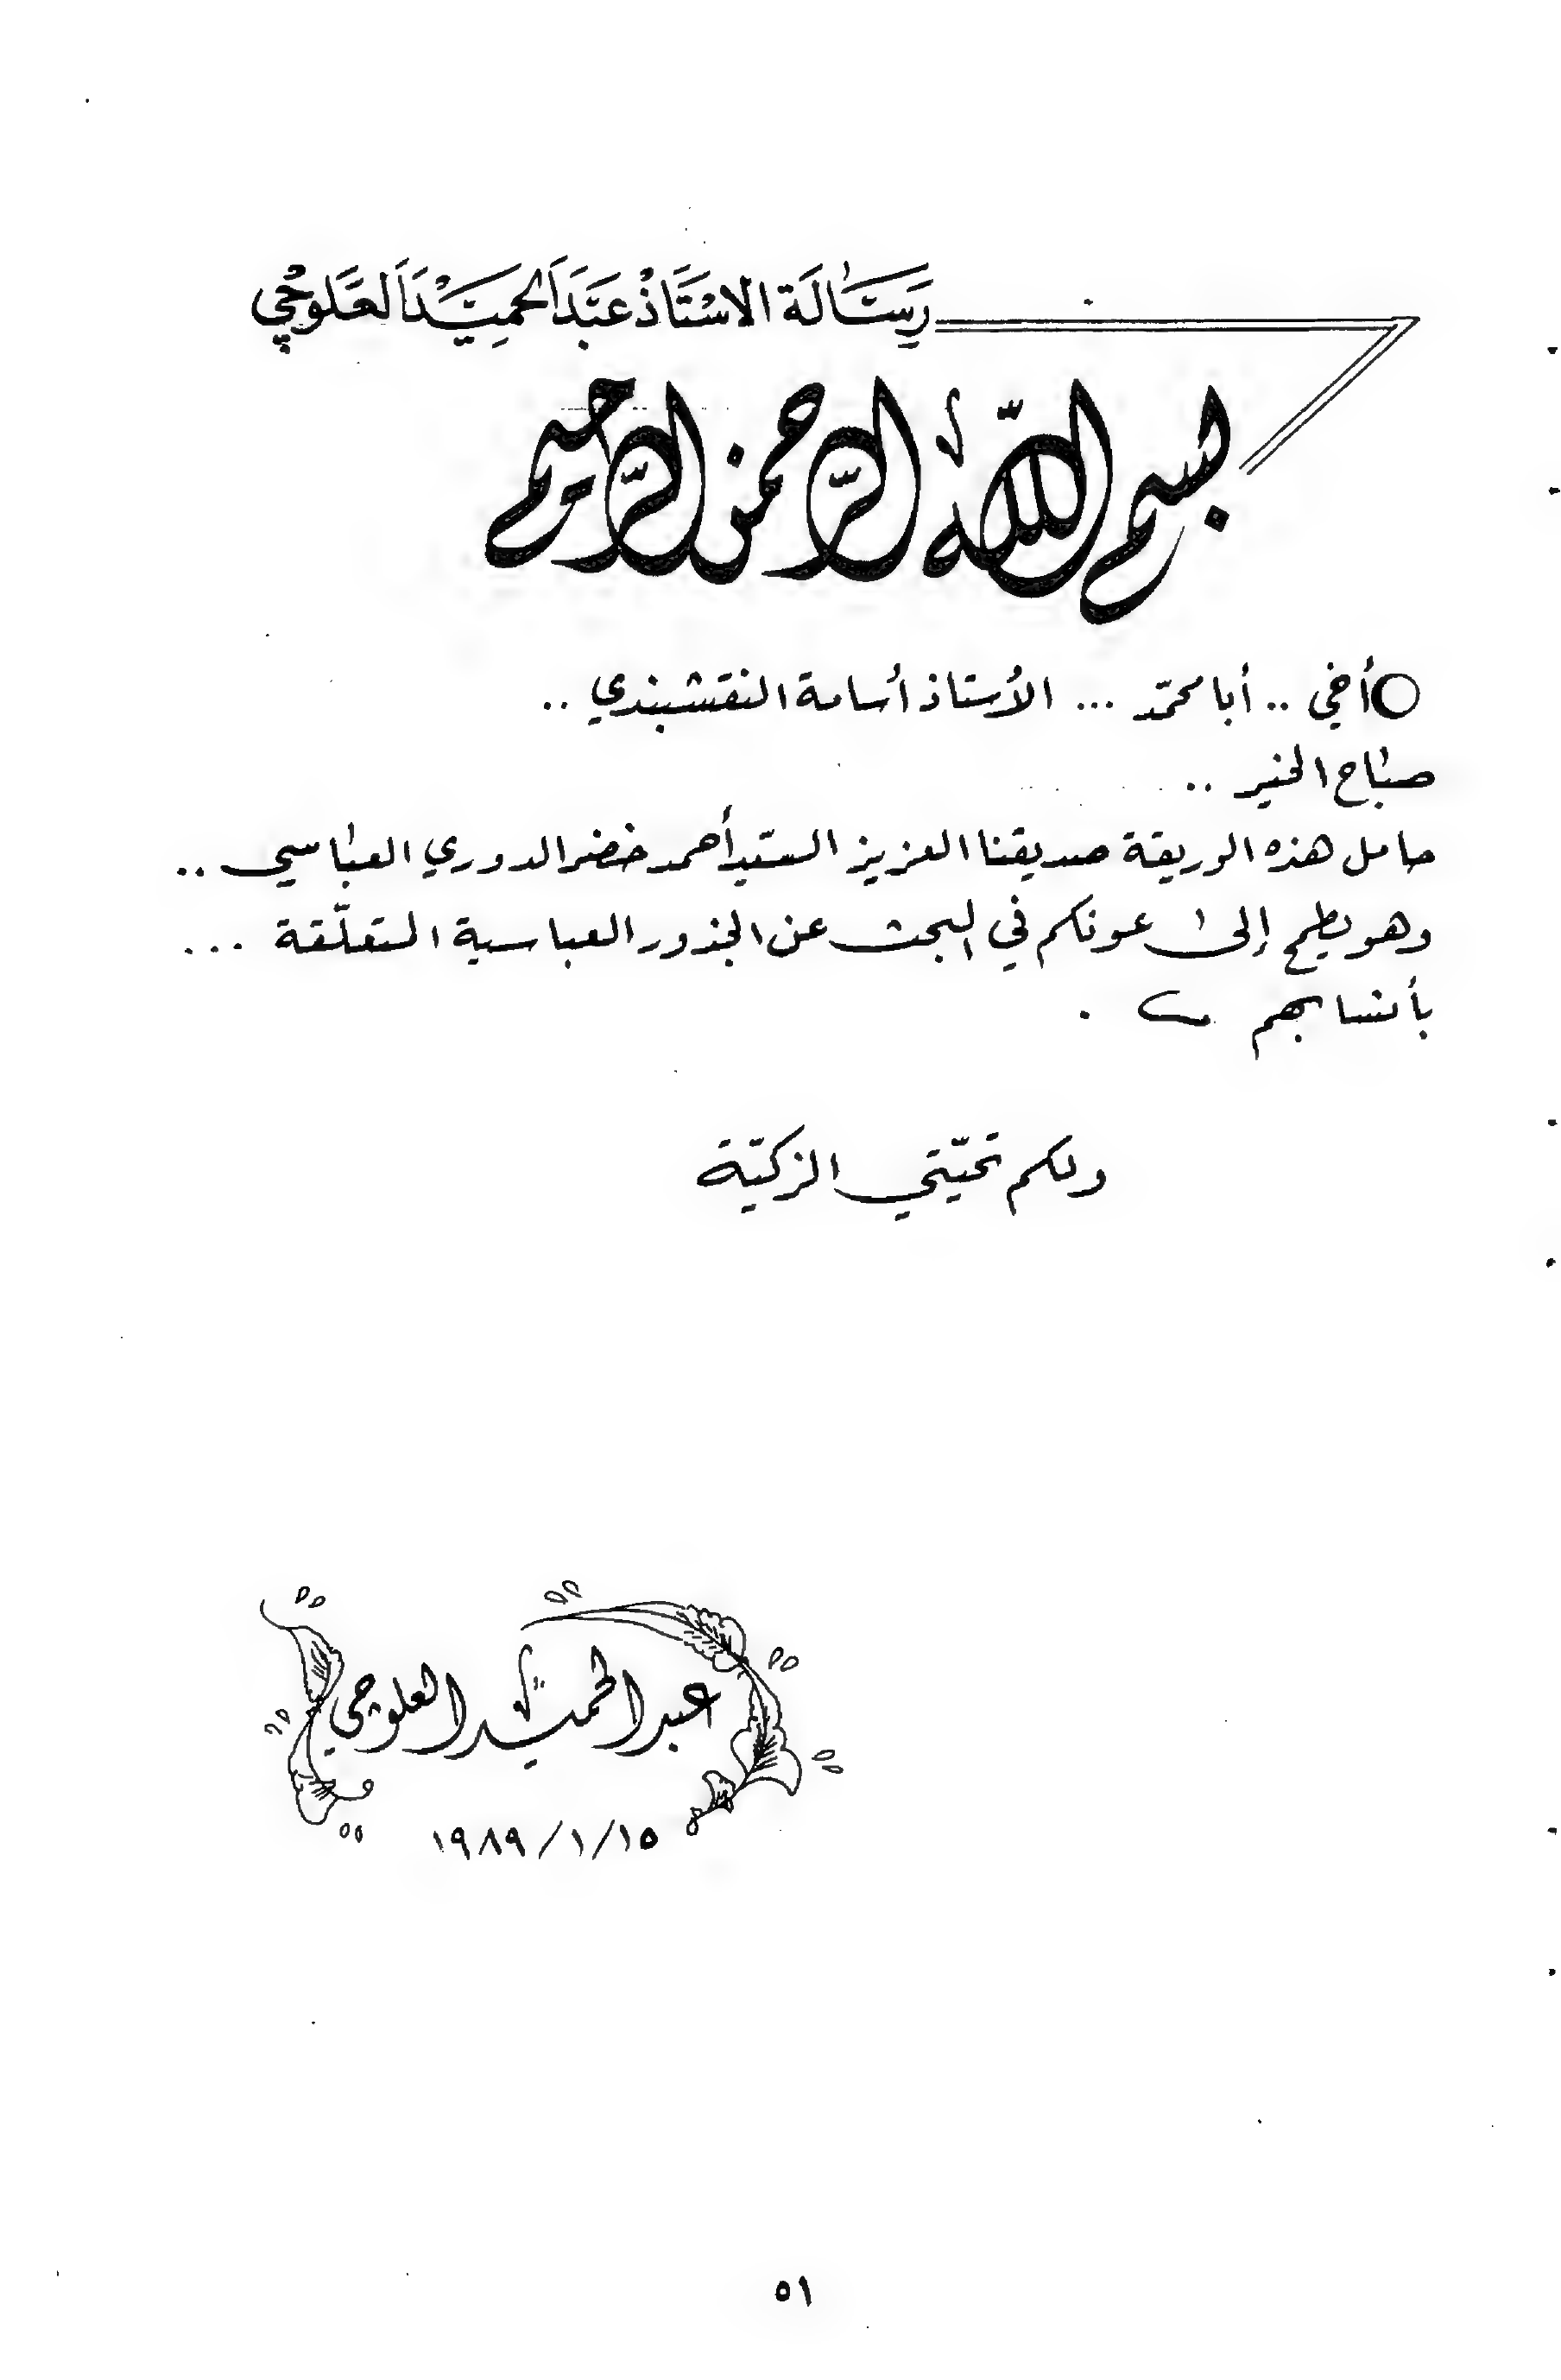 رسالة الاستاذ عبد الحميد العلوجي
بسم الله الرحمن الرحيم
أخي .. أبا محمّد ... الأستاذ أسامة النقشبندي ..
صباح الخير ..
حامل هذه الوريقة صديقنا العزيز السيّد أحمد خضر الدوري العباسي ..
وهو يطمح إلى عونكم في البحث عن الجذور العباسية المتعلّقة ...
بأنسابهم .
ولكم تحيّتي الزكيّة
عبد الحميد العلوجي
١٩٨٩/١/١٥
٥١